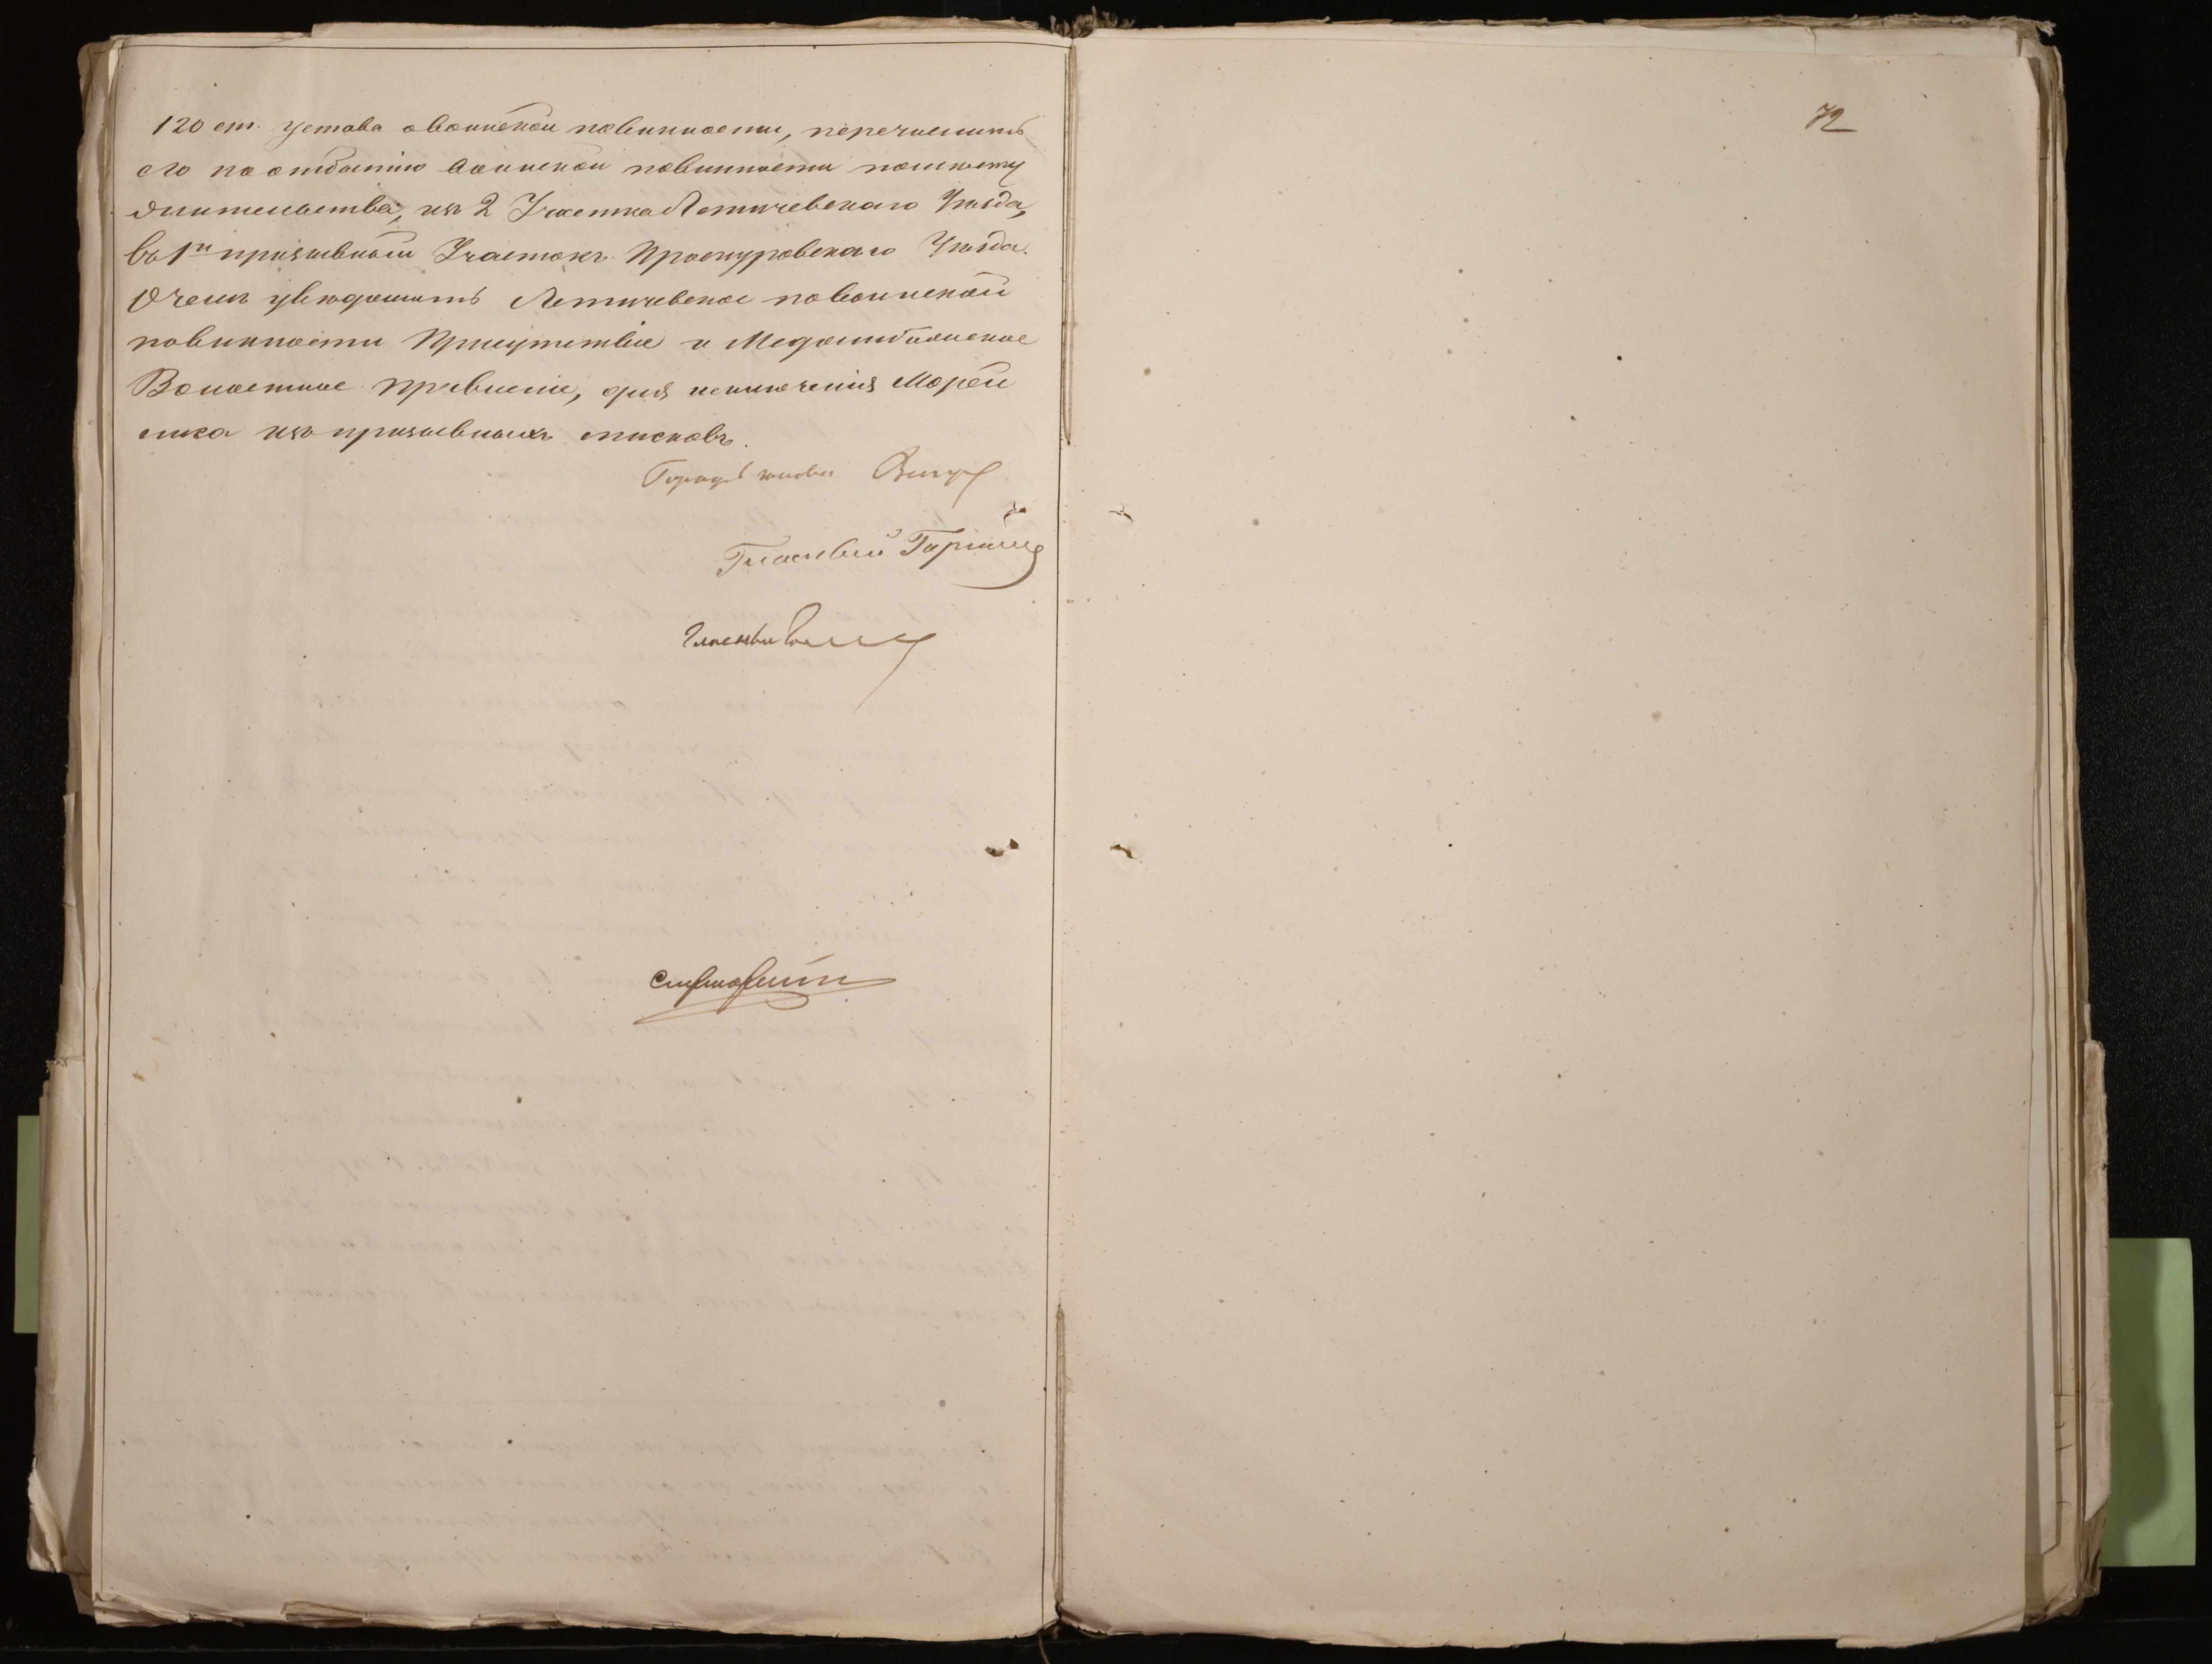 120 ст. устава о воинской повинности, перечислить
его по отбытию воинской повинности по иному
жительства, из 2 Участка Летичевского Уѣзда,
въ 1й призывный Участокъ Проскуровскаго Уѣзда.
О чемъ увѣдомить Летичевское по воинской
повинности Присутствіе и Меджибожское
Волостное правленіе, для исключенія Морей
ника изъ призывныхъ списковъ.
Гласный
Гласный
72